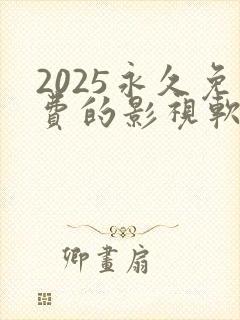 2025永久免
費的影視軟
卿畫扇